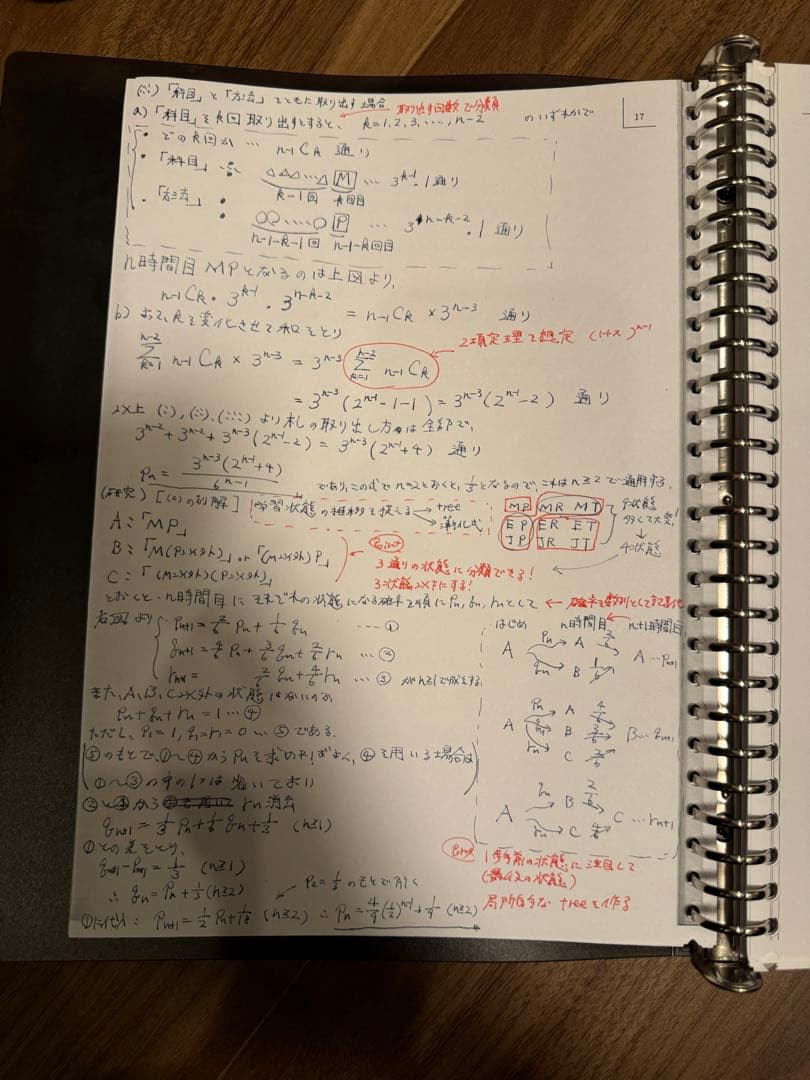 17
(iii)「科目」と「方法」をともに取り出す場合 取り出す回数で分類
a)「科目」をk回取り出すとすると、 k=1,2,3,……,n-2 のいずれかで
・どのk回か … n-1Ck 通り
・「科目」 … △△△…△ M … 3^{k-1}・1通り
k-1回 k回目
・「方法」 ○○……○ P … 3^{n-k-2}・1 通り
n-1-k-1回 n-1-k回目
n時間目 MPとなるのは上図より、
n-1Ck・3^{k-1}・3^{n-k-2} = n-1Ck × 3^{n-3} 通り
b) よって、kを変化させて和をとり
2項定理を想定 (1+x)^{n-1}
Σ_{k=1}^{n-2} n-1Ck × 3^{n-3} = 3^{n-3} Σ_{k=1}^{n-2} n-1Ck
= 3^{n-3}(2^{n-1}-1-1) = 3^{n-3}(2^{n-1}-2) 通り
以上(i),(ii),(iii)より札の取り出し方は全部で、
3^{n-2}+3^{n-2}+3^{n-3}(2^{n-1}-2) = 3^{n-3}(2^{n-1}+4) 通り
Pn = 3^{n-3}(2^{n-1}+4) / 6^{n-1} であり、この式でn=2とおくと、1/3となるので、これはn≧2で通用する。
(研究)[(2)の別解] 学習状態の推移を捉える → tree
→ 漸化式
MP MR MT
EP ER ET
JP JR JT
9状態
多くて大変!
↓
4状態
A:「MP」
B:「M(P以外)」or「(M以外)P」
C:「(M以外)(P以外)」
Point
3通りの状態に分類できる!
3状態以下にする!
とおくと、n時間目にそれぞれの状態になる確率を順にPn, qn, rnとして ← 確率を数列として
右図より
Pn+1 = 2/6 Pn + 1/6 qn ----①
qn+1 = 4/6 Pn + 3/6 qn + 2/6 rn …②
rn+1 = 2/6 qn + 4/6 rn …③ がn≧1で成立する。
また、A,B,C以外の状態はないので、
Pn+qn+rn=1 …④
ただし、P1=1, q1=r1=0 …⑤である。
⑤のもとで、①~④からPnを求めればよく、④を用いる場合は
①~③の中の1つは省いてよい
②と④から rn消去
qn+1 = 1/3 Pn + 1/6 qn + 1/3 (n≧1)
①との差をとり、
qn+1 - Pn+1 = 1/3 (n≧1)
∴ qn = Pn + 1/3 (n≧2)
P2=1/3のもとで解く
①に代入: Pn+1 = 1/2 Pn + 1/18 (n≧2) ∴ Pn = 4/9 (1/2)^{n-1} + 1/9 (n≧2)
はじめ n時間目 n+1時間目
A Pn A 2/6
qn B 1/6 A…Pn+1
A Pn A 4/6
qn B 3/6 B…qn+1
rn C 2/6
A qn B 2/6
rn C 4/6 C…rn+1
Point
1歩手前の状態に注目して
局所的な treeを作る